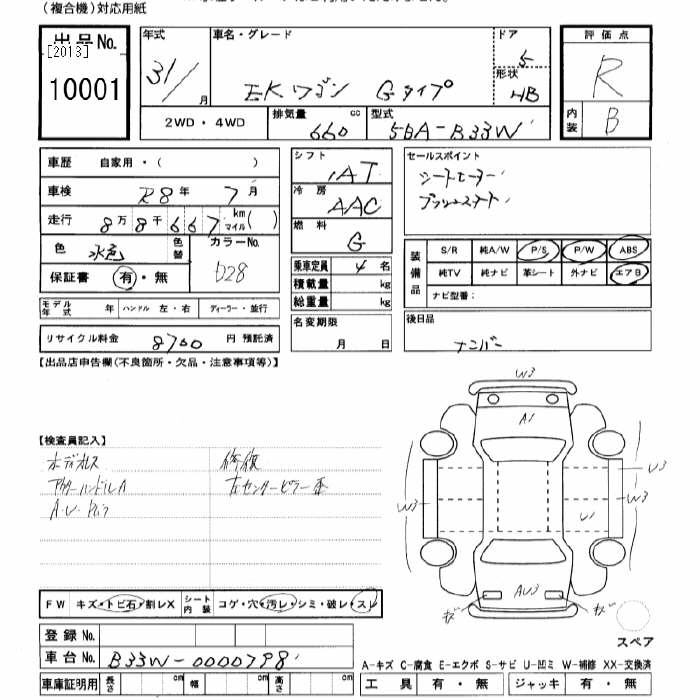 (複合機)対応用紙
出品No. [2013] 10001
年式 31/ 月
車名・グレード EKワゴン Gタイプ
ドア 5
形状 HB
評価点 R
内装 B
2WD・4WD
排気量 660 cc
型式 5BA-B33W
車歴 自家用・( )
車検 R8年 7月
走行 8万8千667 km マイル( )
色 水色 色替 カラーNo. D28
保証書 有・無
モデル年式 年 ハンドル 左・右 ディーラー・並行
リサイクル料金 8700 円 預託済
シフト IAT
冷房 AAC
燃料 G
乗車定員 4名
積載量 kg
総重量 kg
名変期限 月 日
セールスポイント
シートヒーター
プッシュスタート
装備品 S/R 純A/W P/S P/W ABS
純TV 純ナビ 革シート 外ナビ エアB
ナビ型番:
後日品
ナンバー
【出品店申告欄(不良箇所・欠品・注意事項等)】
【検査員記入】
ボディオレス 修復
アウターハンドルA 左センターピラー
A・U・
W3
A1
W3
U3
W3
U1
AU3
スペア
FW キズ・トビ石・割レX シート内装 コゲ・穴・汚レ・シミ・破レ・スレ
登録No.
車台No. B33W-0000798
車庫証明用 長さ cm 幅 cm 高さ cm
A-キズ C-腐食 E-エクボ S-サビ U-凹ミ W-補修 XX-交換済
工具 有・無 ジャッキ 有・無